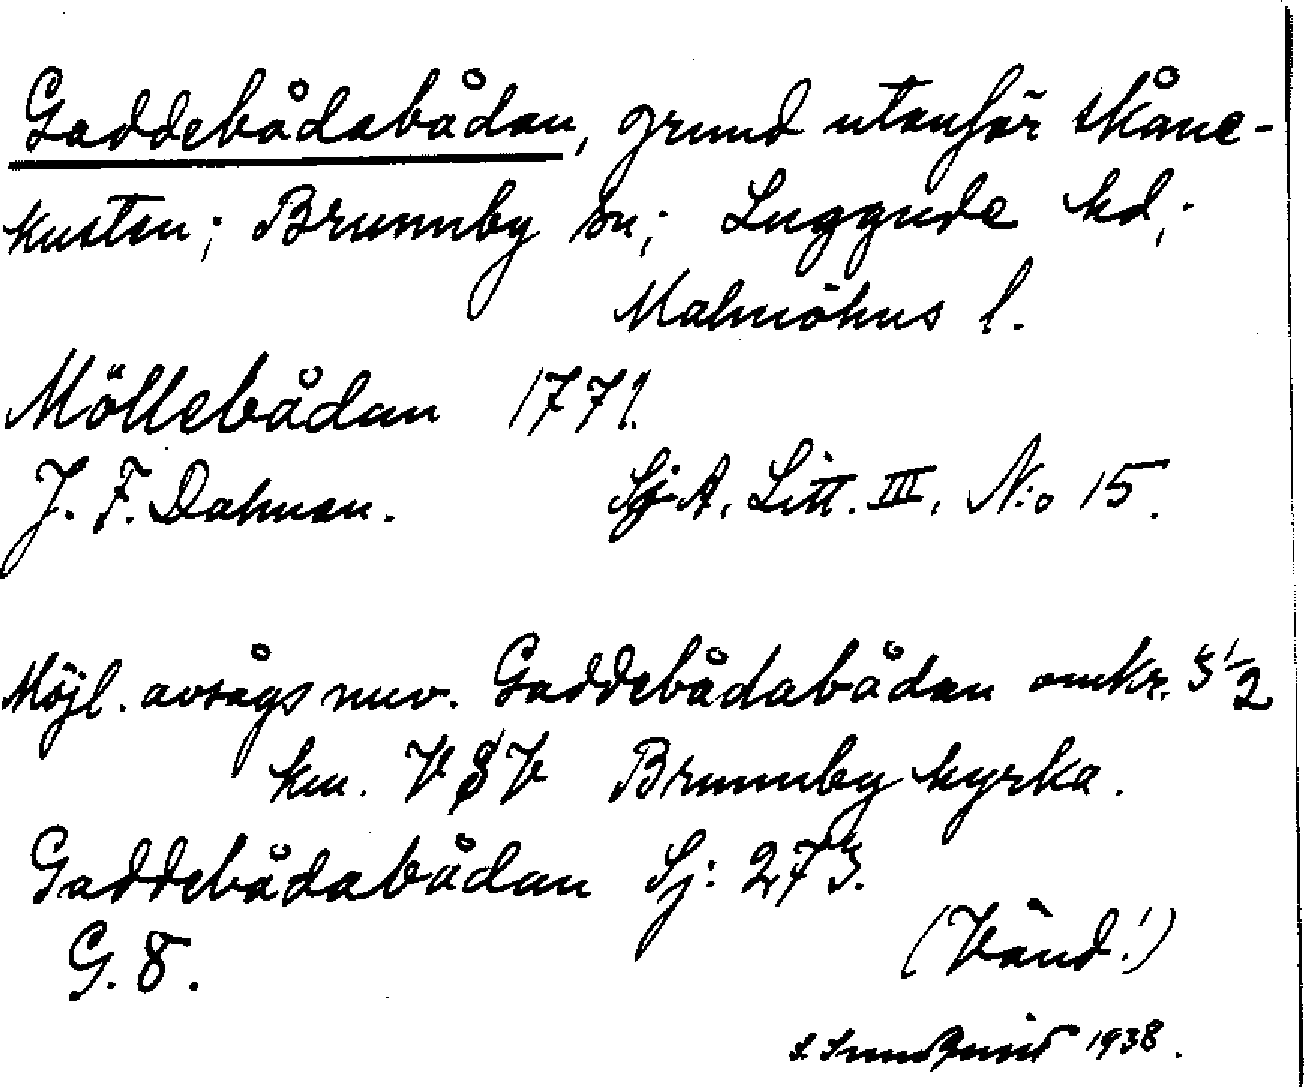 Gaddebådabådan, grund utanför skåne-
kusten; Brunnby sn; Luggude hd;
Malmöhus l.
Möllebådan 1771.
J. F. Dalman. Sj A. Litt. III, N:o 15.
Möjl. avsågs nuv. Gaddebådabådan omkr. 3 1/2
km. V S V Brunnby kyrka.
Gaddebådabådan Sj: 273.
G. 8.
(Vänd!)
1938.